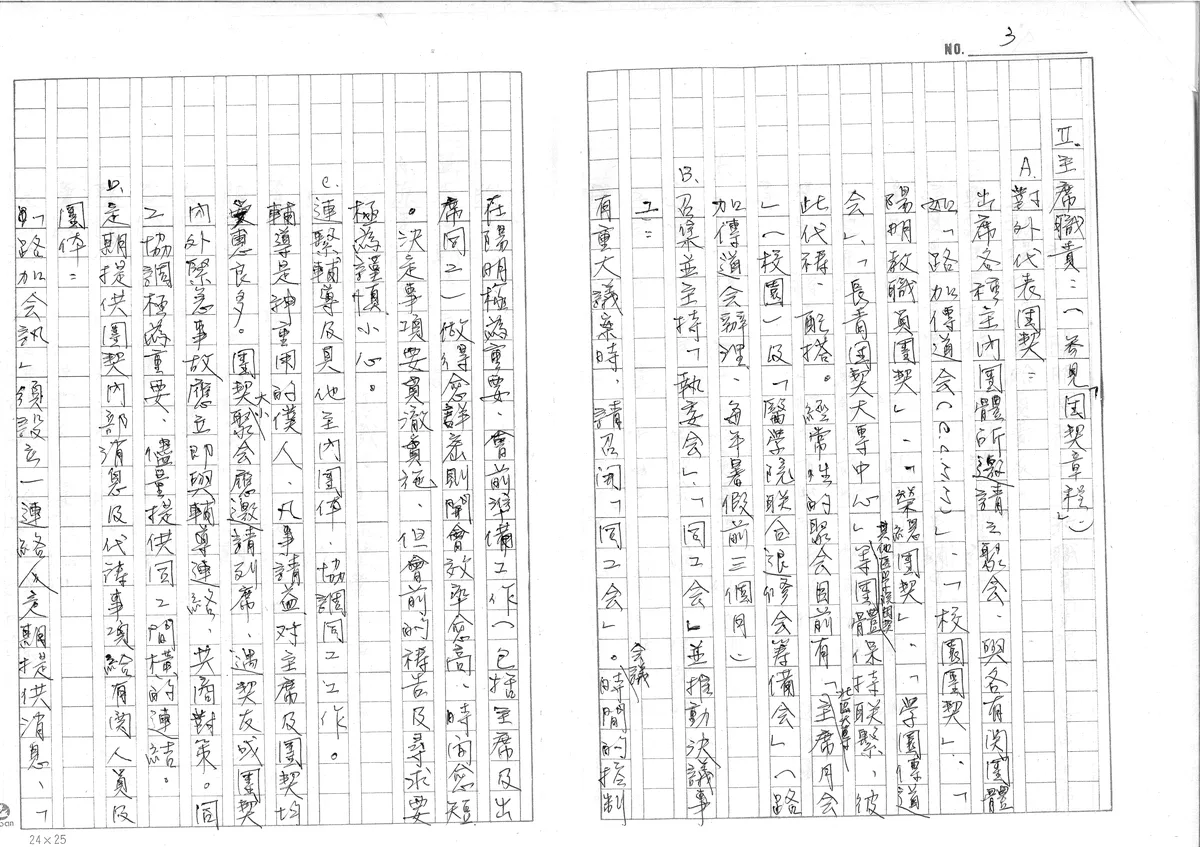 NO. 3
II. 主席職責:(參見「团契章程」)
A. 對外代表团契:
出席各種主內團體所邀請之聚会、與各有関團體
如「路加傳道会(c.c.m.m)」、「校園團契」、「
陽明教職員團契」、「榮總團契」、「学園傳道
会」、「長青团契大專中心」其他医学院團契等團體保持联繫、彼
此代禱、配搭。經常性的聚会目前有「北區大專主席月会
」(校園)及「醫学院联合退修会籌備会」(路
加傳道会辦理、每年暑假前三個月)
B. 召集並主持「執委会」、「同工会」並推動決議事
工:
有重大議案時、請召開「同工会」。会議時間的控制
在陽明極為重要、會前準備工作(包括主席及出
席同工)做得愈詳密則開會效率愈高、時间愈短
。決定事項要貫徹實施、但會前的禱告及尋求要
極為謹慎小心。
C. 連繫輔導及其他主內團体、協調同工工作。
輔導是神重用的僕人、凡事請益对主席及團契均
受惠良多。團契大小聚会應邀請列席、遇契友或團契
内外緊急事故應立即與輔導連絡、共商對策。同
工協調極為重要、儘量提供同工間橫的連結。
D. 定期提供團契內部消息及代禱事項給有関人員及
團体:
「路加会訊」須設立一連絡人定期提供消息、「
24×25